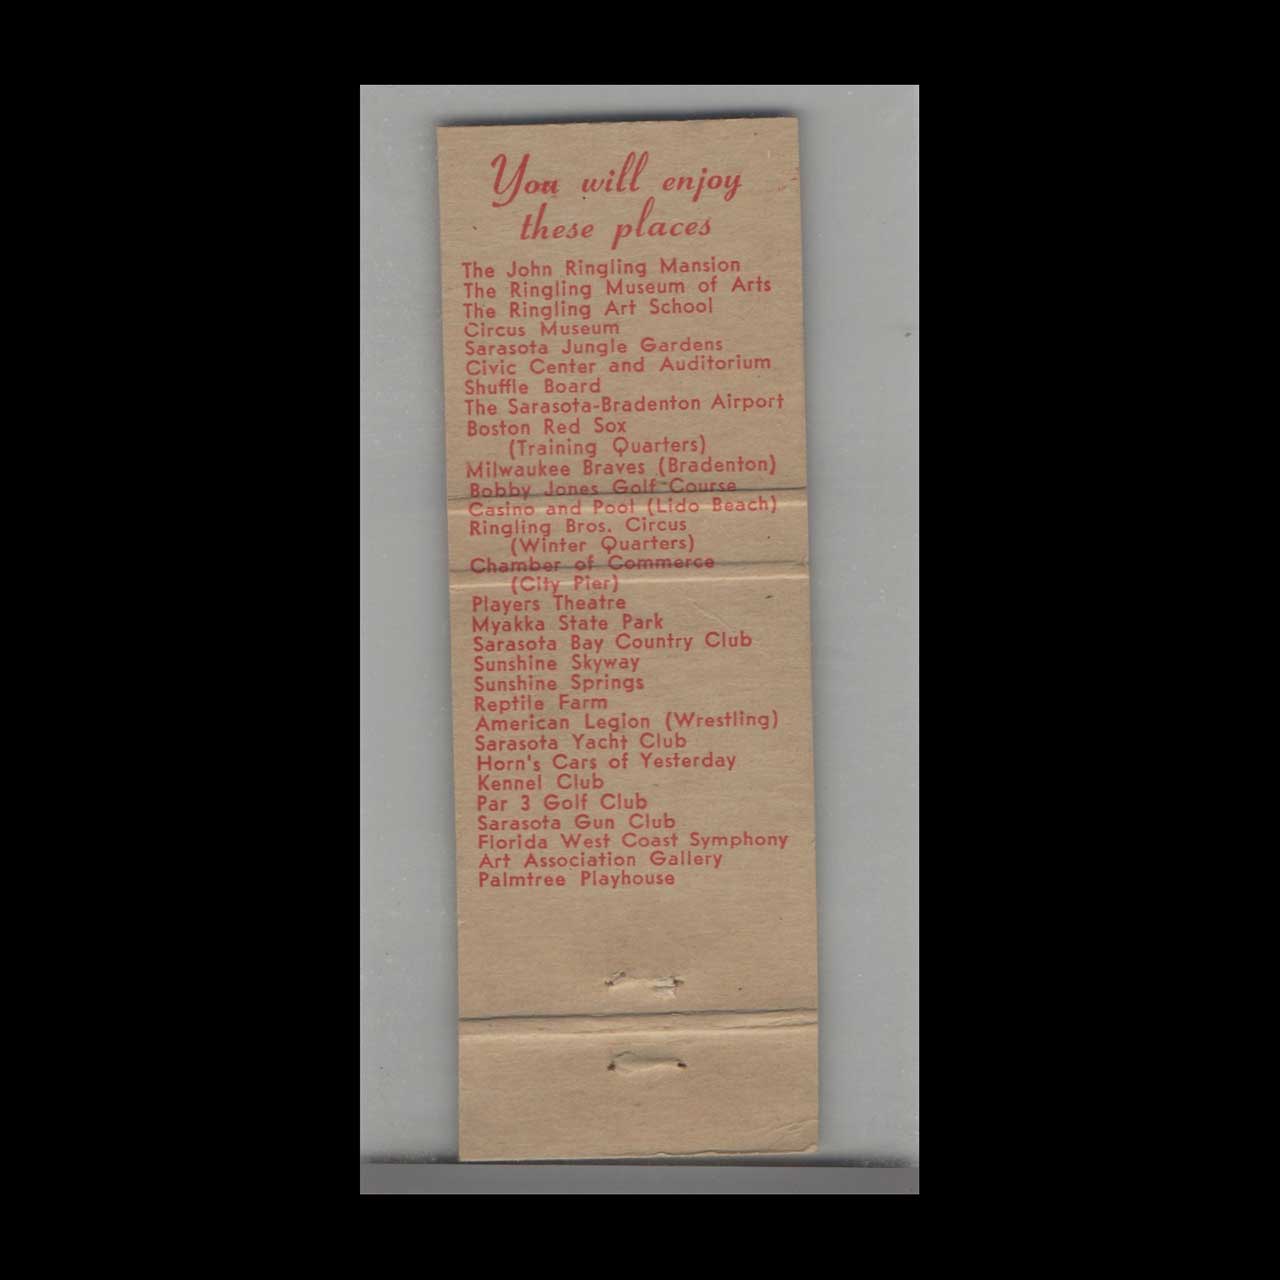 You will enjoy
these places
The John Ringling Mansion
The Ringling Museum of Arts
The Ringling Art School
Circus Museum
Sarasota Jungle Gardens
Civic Center and Auditorium
Shuffle Board
The Sarasota-Bradenton Airport
Boston Red Sox
(Training Quarters)
Milwaukee Braves (Bradenton)
Bobby Jones Golf Course
Casino and Pool (Lido Beach)
Ringling Bros. Circus
(Winter Quarters)
Chamber of Commerce
(City Pier)
Players Theatre
Myakka State Park
Sarasota Bay Country Club
Sunshine Skyway
Sunshine Springs
Reptile Farm
American Legion (Wrestling)
Sarasota Yacht Club
Horn's Cars of Yesterday
Kennel Club
Par 3 Golf Club
Sarasota Gun Club
Florida West Coast Symphony
Art Association Gallery
Palmtree Playhouse